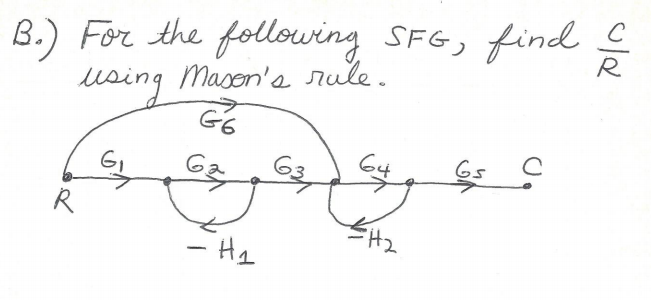 B.) For the following SFG, find C/R
using Mason's rule.
G6
G1 G2 G3 G4 G5 C
R
- H1 -H2